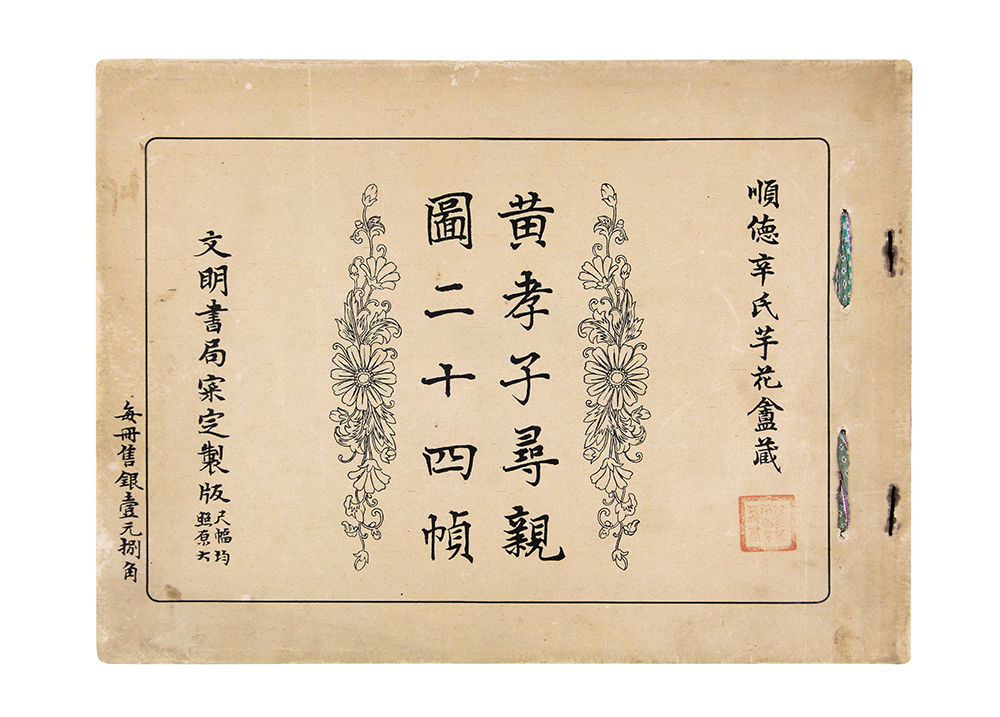 順德辛氏芋花盦藏
黄孝子尋親
圖二十四幀
文明書局宷定製版
尺幅均
照原大
每冊售銀壹元捌角